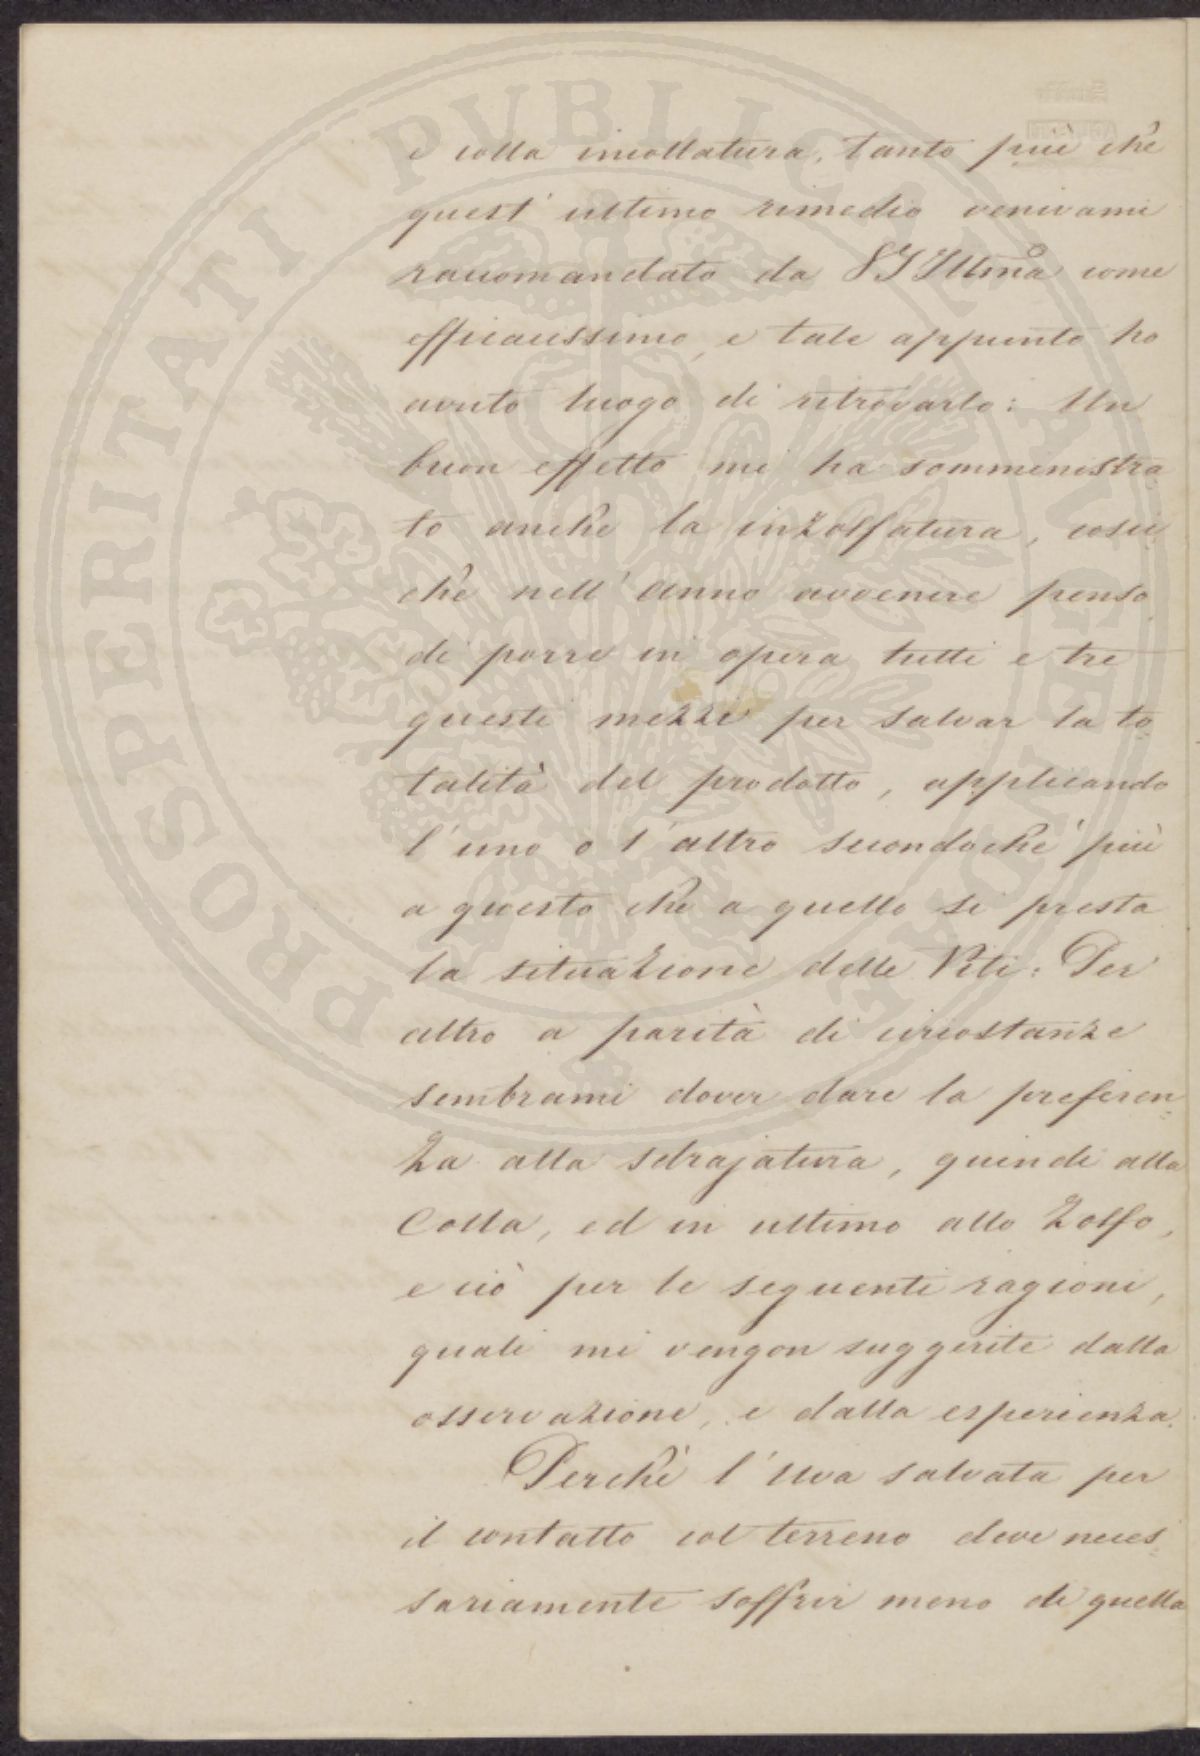 e colla incollatura, tanto più che
quest' ultimo rimedio venivami
raccomandato da S S Illma come
efficacissimo, e tale appunto ho
avuto luogo di ritrovarlo: Un
buon effetto mi ha somministra
to anche la inzolfatura, cosic
chè nell' anno avvenire penso
di porre in opera tutti e tre
questi mezzi per salvar la to
talità del prodotto, applicando
l' uno o l' altro secondochè più
a questo che a quello si presta
la situazione delle Viti: Per
altro a parità di circostanze
sembrami dover dare la preferen
za alla sdrajatura, quindi alla
Colla, ed in ultimo allo Zolfo,
e ciò per le seguenti ragioni,
quali mi vengon suggerite dalla
osservazione, e dalla esperienza.
Perchè l' Uva salvata per
il contatto col terreno deve neces
sariamente soffrir meno di quella
PROSPERITATI PUBLICAE AUGENDAE